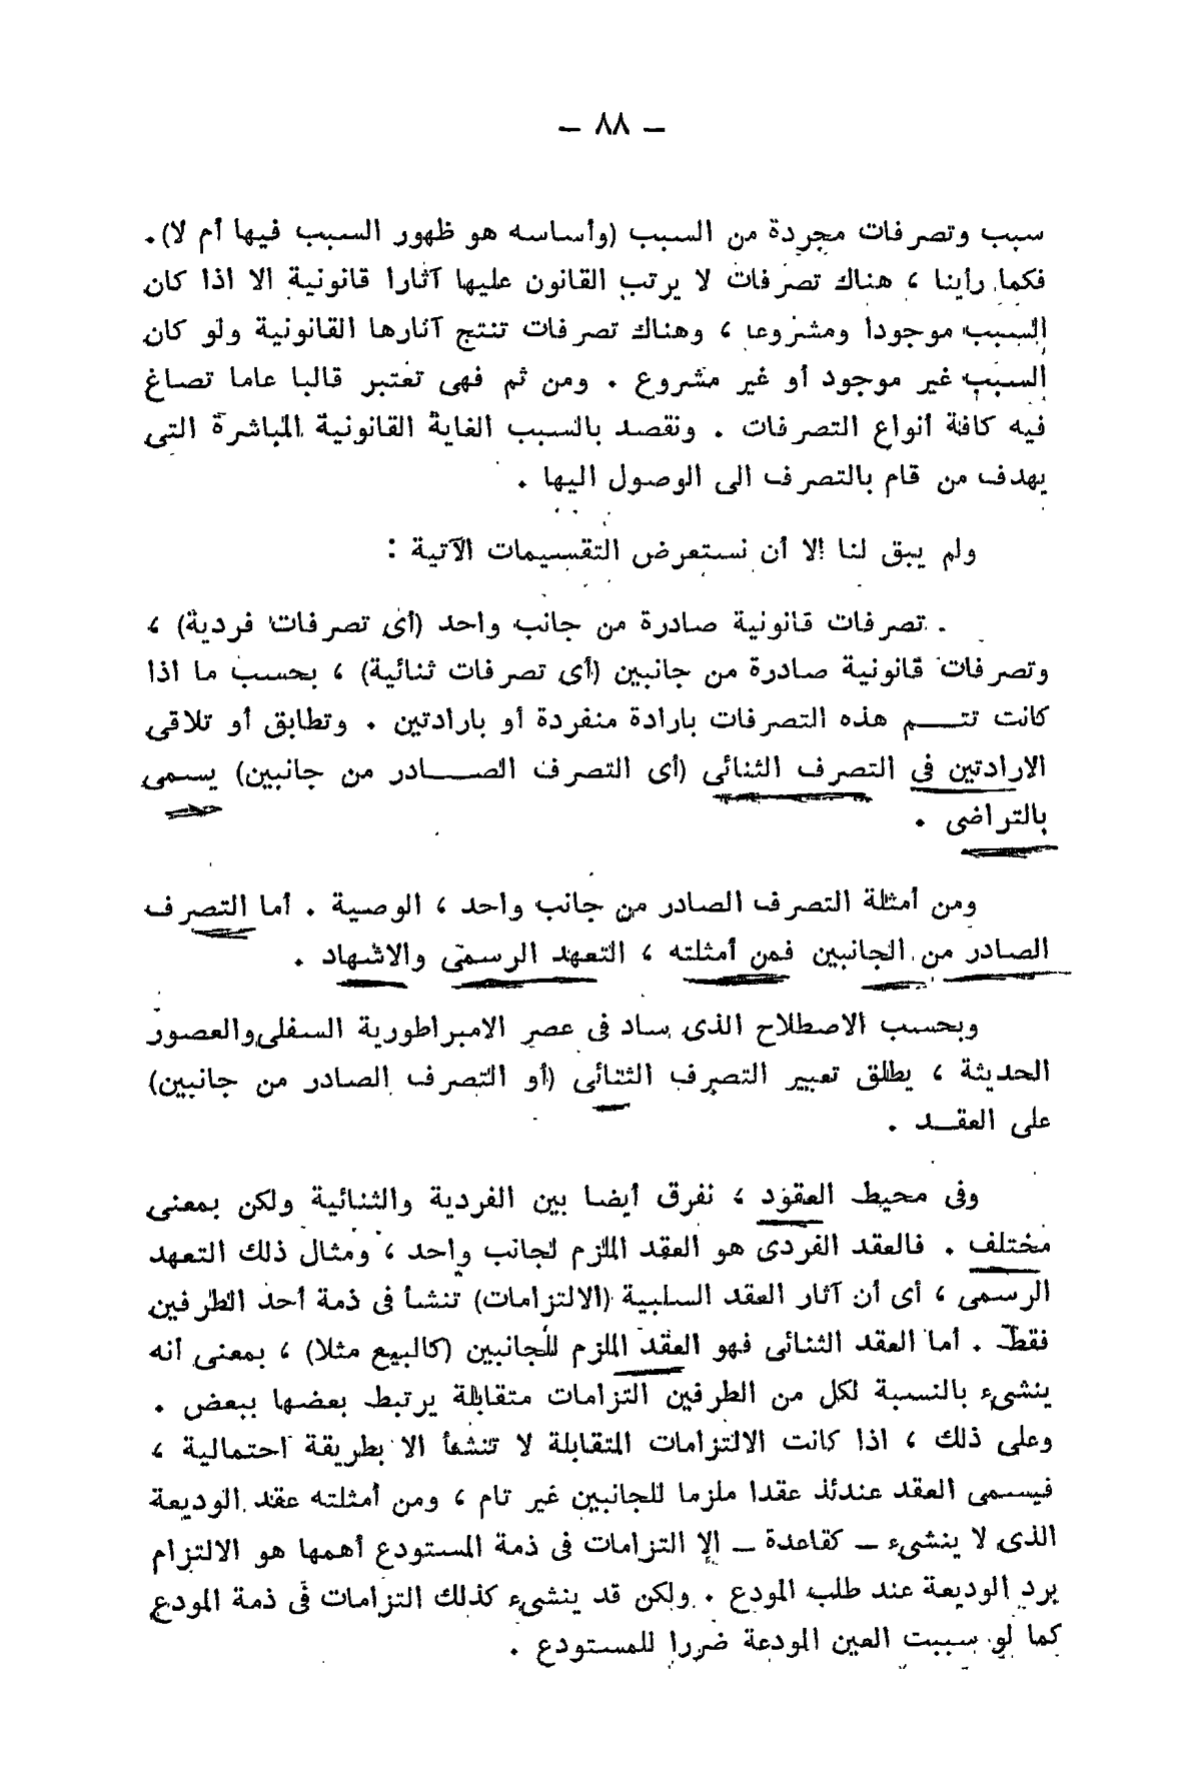 – ٨٨ –
سبب وتصرفات مجردة من السبب (وأساسه هو ظهور السبب فيها أم لا) .
فكما رأينا ، هناك تصرفات لا يرتب القانون عليها آثارا قانونية الا اذا كان
السبب موجودا ومشروعا ، وهناك تصرفات تنتج آثارها القانونية ولو كان
السبب غير موجود أو غير مشروع . ومن ثم فهى تعتبر قالبا عاما تصاغ
فيه كافة أنواع التصرفات . ونقصد بالسبب الغاية القانونية المباشرة التى
يهدف من قام بالتصرف الى الوصول اليها .
ولم يبق لنا إلا أن نستعرض التقسيمات الآتية :
تصرفات قانونية صادرة من جانب واحد (أى تصرفات فردية) ،
وتصرفات قانونية صادرة من جانبين (أى تصرفات ثنائية) ، بحسب ما اذا
كانت تتم هذه التصرفات بارادة منفردة أو بارادتين . وتطابق أو تلاقى
الارادتين فى التصرف الثنائى (أى التصرف الصادر من جانبين) يسمى
بالتراضى .
ومن أمثلة التصرف الصادر من جانب واحد ، الوصية . أما التصرف
الصادر من الجانبين فمن أمثلته ، التعهد الرسمى والاشهاد .
وبحسب الاصطلاح الذى ساد فى عصر الامبراطورية السفلى والعصور
الحديثة ، يطلق تعبير التصرف الثنائى (أو التصرف الصادر من جانبين)
على العقد .
وفى محيط العقود ، نفرق أيضا بين الفردية والثنائية ولكن بمعنى
مختلف . فالعقد الفردى هو العقد الملزم لجانب واحد ، ومثال ذلك التعهد
الرسمى ، أى أن آثار العقد السلبية (الالتزامات) تنشأ فى ذمة أحد الطرفين
فقط . أما العقد الثنائى فهو العقد الملزم للجانبين (كالبيع مثلا) ، بمعنى أنه
ينشىء بالنسبة لكل من الطرفين التزامات متقابلة يرتبط بعضها ببعض .
وعلى ذلك ، اذا كانت الالتزامات المتقابلة لا تنشأ الا بطريقة احتمالية ،
فيسمى العقد عندئذ عقدا ملزما للجانبين غير تام ، ومن أمثلته عقد الوديعة
الذى لا ينشىء – كقاعدة – إلا التزامات فى ذمة المستودع أهمها هو الالتزام
برد الوديعة عند طلب المودع . ولكن قد ينشىء كذلك التزامات فى ذمة المودع
كما لو سببت العين المودعة ضررا للمستودع .